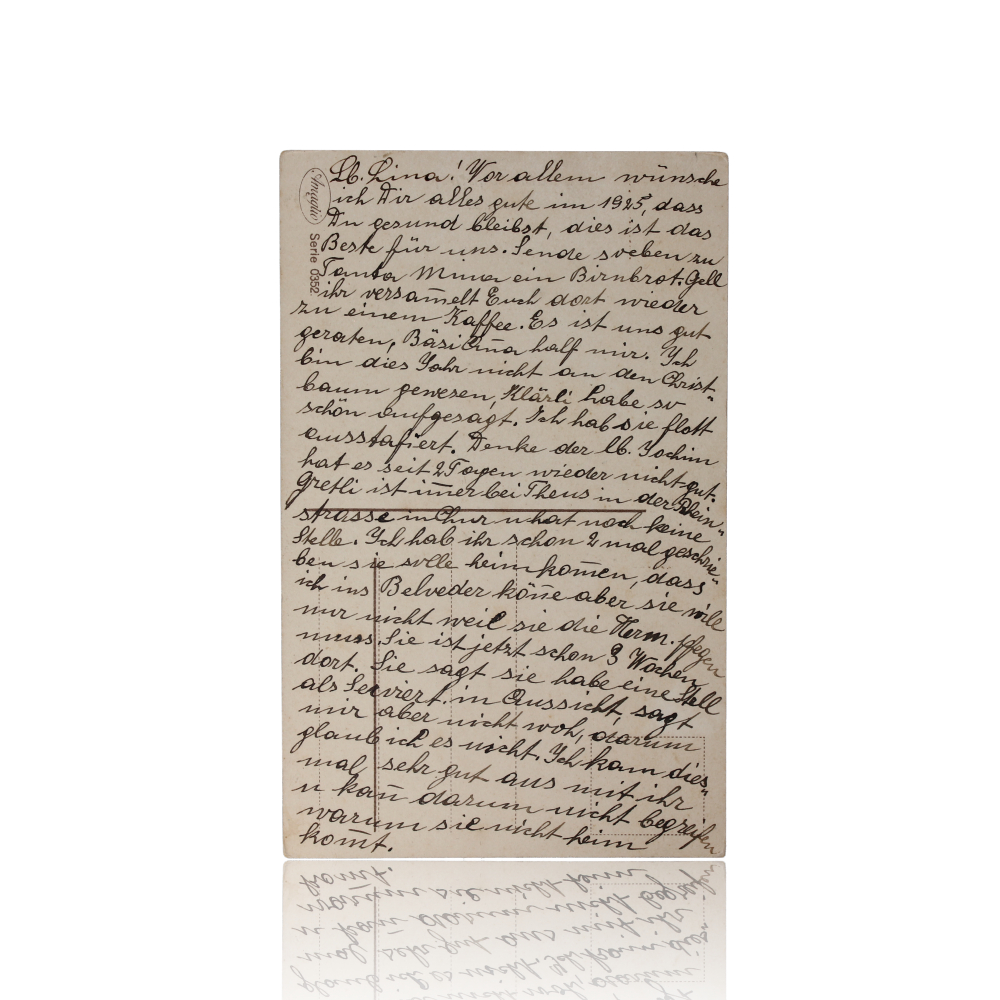 Lb. Lina! Vor allem wünsche
ich Dir alles gute im 1925, dass
Du gesund bleibst, dies ist das
Beste für uns. Sende soeben zu
Tanta Mina ein Birnbrot. Gell
ihr versam̄elt Euch dort wieder
zu einem Kaffee. Es ist uns gut
geraten, Bäsi Ana half mir. Ich
bin dies Jahr nicht an den Christ-
baum gewesen, Klärli habe so
schön aufgesagt. Ich hab sie flott
ausstafiert. Denke der lb. Jochim
hat es seit 2 Tagen wieder nicht gut.
Gretli ist im̄er bei Theus in der Rhein-
strasse in Chur u hat noch keine
Stelle. Ich hab ihr schon 2 mal geschrie-
ben sie solle heim kom̄en, dass
ich ins Belveder kön̄e aber sie will
nur nicht weil sie die Herm. pflegen
muss. Sie ist jetzt schon 3 Wochen
dort. Sie sagt sie habe eine Stell
als Serviert. in Aussicht, sagt
mir aber nicht woh, darum
glaub ich es nicht. Ich kam dies-
mal sehr gut aus mit ihr
u kan̄ darum nicht begreifen
warum sie nicht heim
kom̄t.
Serie 0352